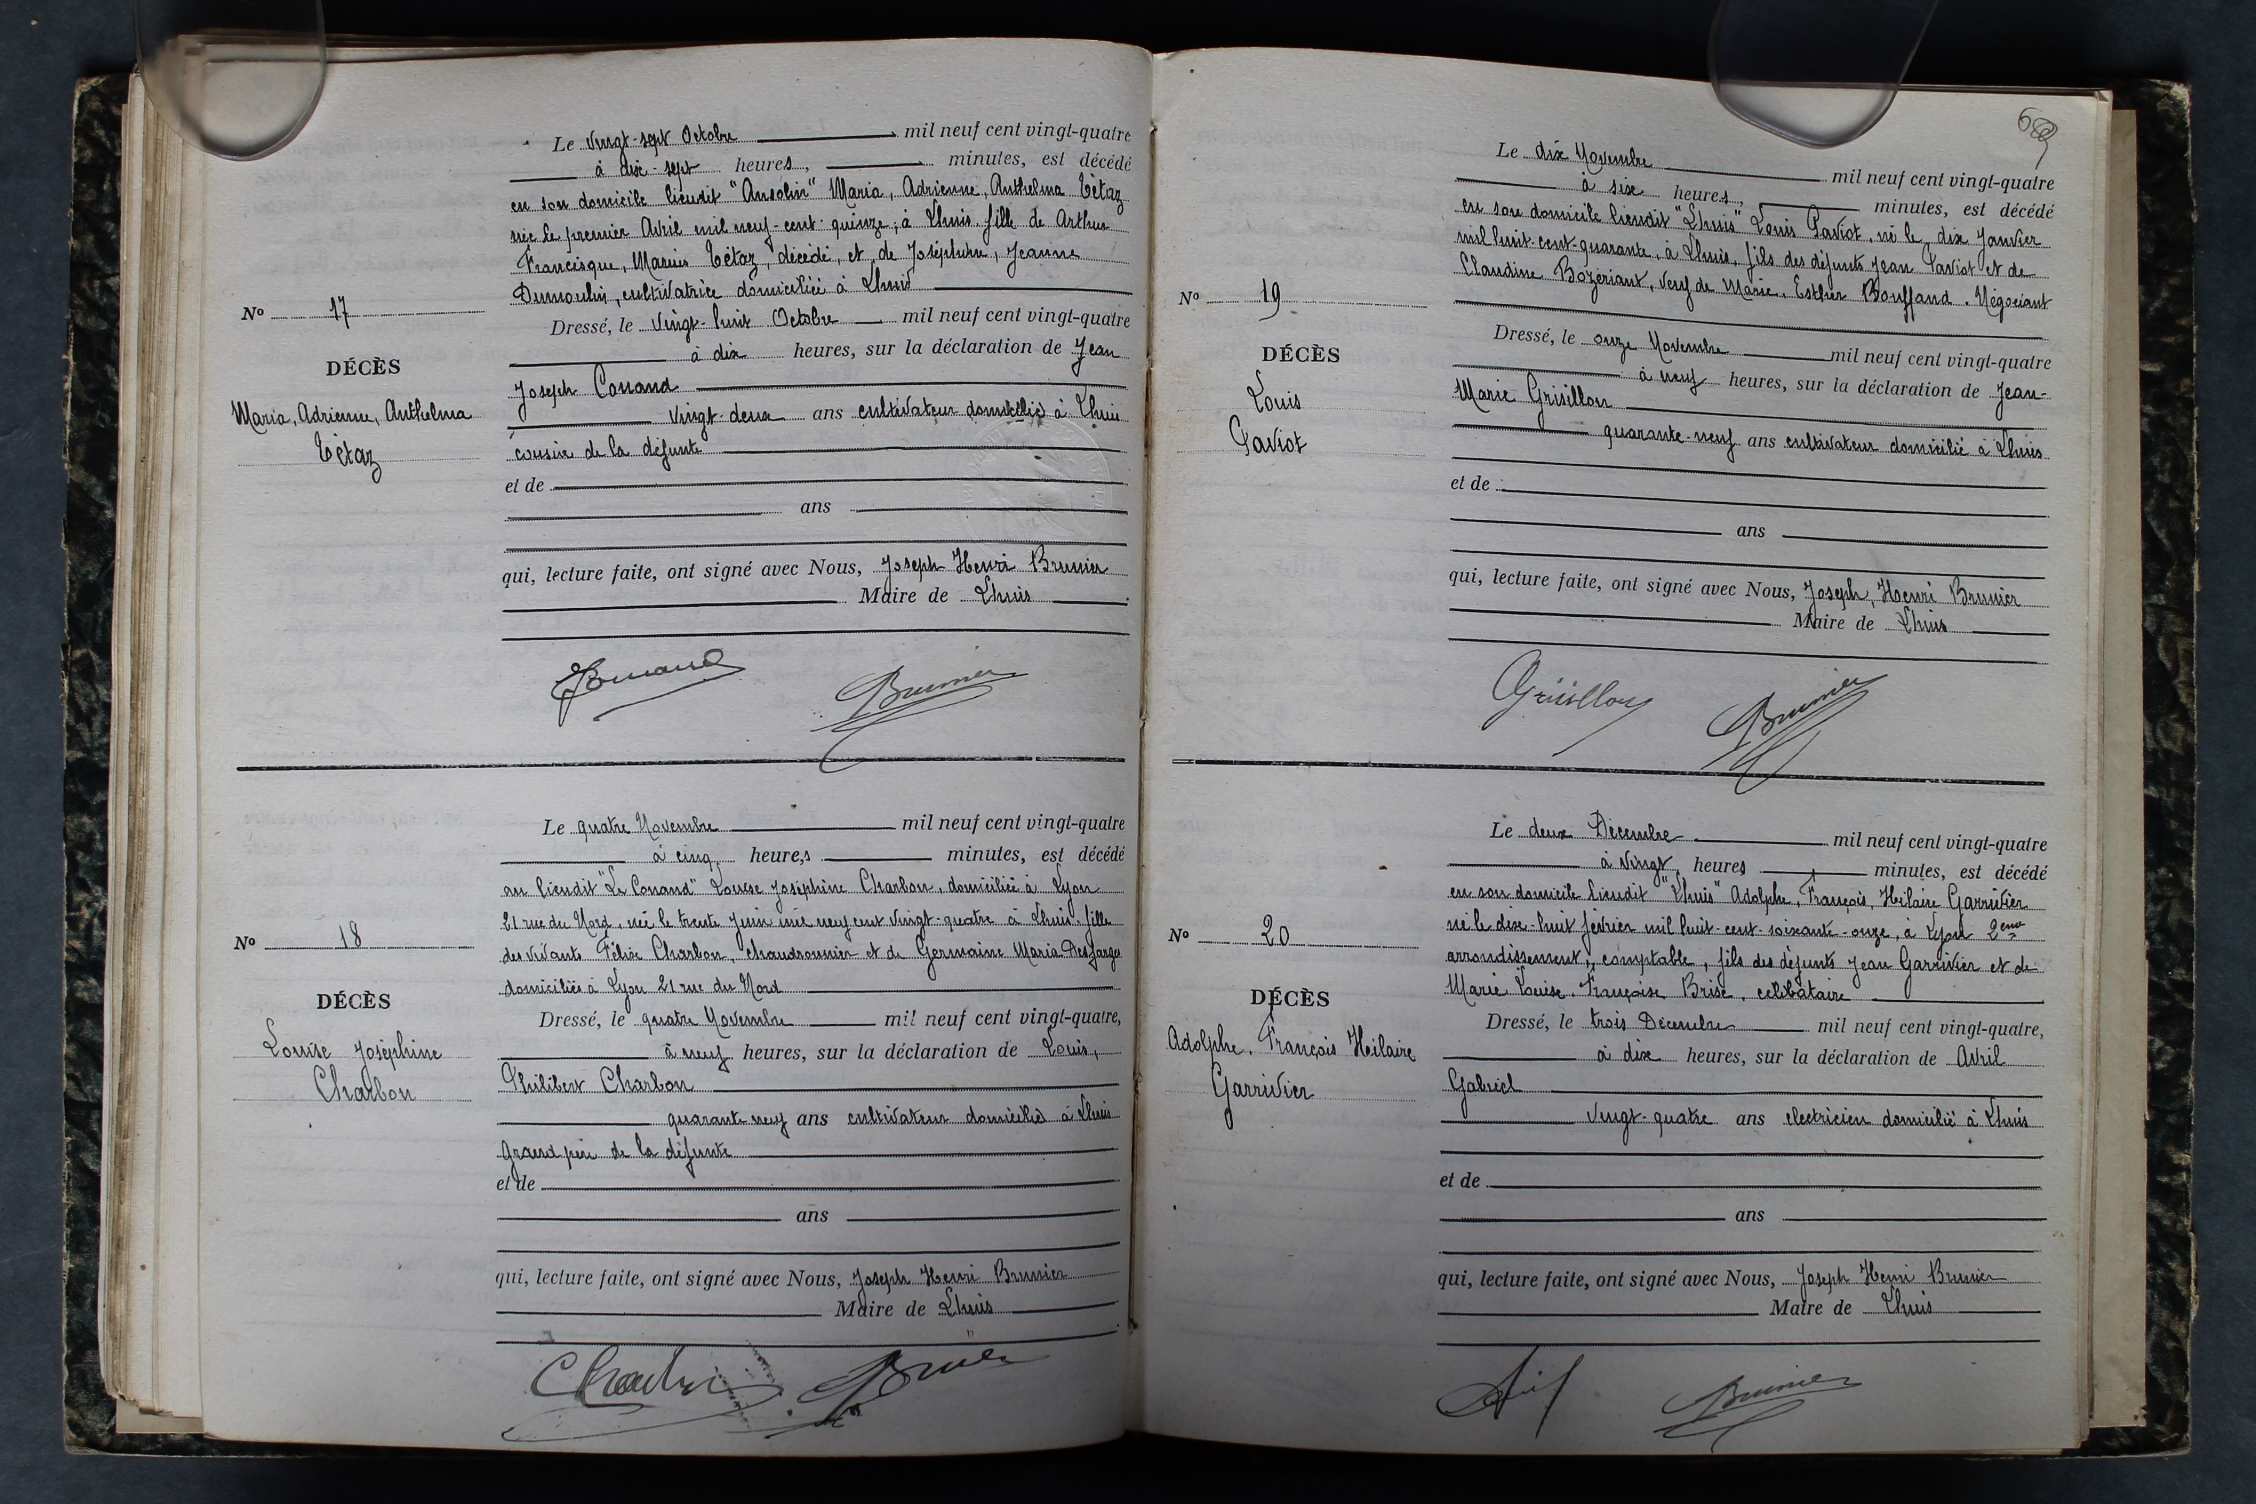 Le vingt-sept Octobre mil neuf cent vingt-quatre
à dix-sept heures, minutes, est décédé
en son domicile lieudit "Ansolin" Maria, Adrienne, Anthelma Tétaz
née le premier Avril mil neuf-cent-quinze, à Lhuis fille de Arthur
Francisque, Marius Tétaz, décédé, et de Joséphine, Jeanne
Dumoulin, cultivatrice domiciliée à Lhuis
No 17
DÉCÈS
Maria, Adrienne, Anthelma
Tétaz
Dressé, le vingt-huit Octobre mil neuf cent vingt-quatre
à dix heures, sur la déclaration de Jean
Joseph Conand
vingt-deux ans cultivateur domicilié à Lhuis
cousin de la défunte
et de
ans
qui, lecture faite, ont signé avec Nous, Joseph Henri Brunier
Maire de Lhuis
Conand Brunier
Le quatre Novembre mil neuf cent vingt-quatre
à cinq heures minutes, est décédé
au lieudit "Le Conand" Louise Joséphine Charbon, domiciliée à Lyon
21 rue du Nord, née le trente Juin mil neuf cent vingt-quatre à Lhuis fille
des vivants Félix Charbon, chaudronnier et de Germaine Maria Desfarges
domiciliés à Lyon 21 rue du Nord
No 18
DÉCÈS
Louise Joséphine
Charbon
Dressé, le quatre Novembre mil neuf cent vingt-quatre,
à neuf heures, sur la déclaration de Louis,
Philibert Charbon
quarante neuf ans cultivateur domicilié à Lhuis
Grand père de la défunte
et de
ans
qui, lecture faite, ont signé avec Nous, Joseph Henri Brunier
Maire de Lhuis
Charbon Brunier
Le dix Novembre mil neuf cent vingt-quatre
à six heures, minutes, est décédé
en son domicile lieudit "Lhuis" Louis Paviot, né le dix Janvier
mil huit-cent-quarante, à Lhuis, fils des défunts Jean Paviot et de
Claudine Bozériant, veuf de Marie, Esther Bouffand. Négociant
No 19
DÉCÈS
Louis
Paviot
Dressé, le onze Novembre mil neuf cent vingt-quatre
à neuf heures, sur la déclaration de Jean-
Marie Grisillon
quarante-neuf ans cultivateur domicilié à Lhuis
et de
ans
qui, lecture faite, ont signé avec Nous, Joseph, Henri Brunier
Maire de Lhuis
Grisillon Brunier
Le deux Décembre mil neuf cent vingt-quatre
à vingt heures minutes, est décédé
en son domicile lieudit "Lhuis" Adolphe, François, Hilaire Garrivier
né le dix-huit février mil huit-cent-soixante-onze, à Lyon 2eme
arrondissement, comptable, fils des défunts Jean Garrivier et de
Marie Louise Françoise Brise, célibataire
No 20
DÉCÈS
Adolphe, François Hilaire
Garrivier
Dressé, le trois Décembre mil neuf cent vingt-quatre,
à dix heures, sur la déclaration de Avril
Gabriel
vingt-quatre ans electricien domicilié à Lhuis
et de
ans
qui, lecture faite, ont signé avec Nous, Joseph Henri Brunier
Maire de Lhuis
Brunier